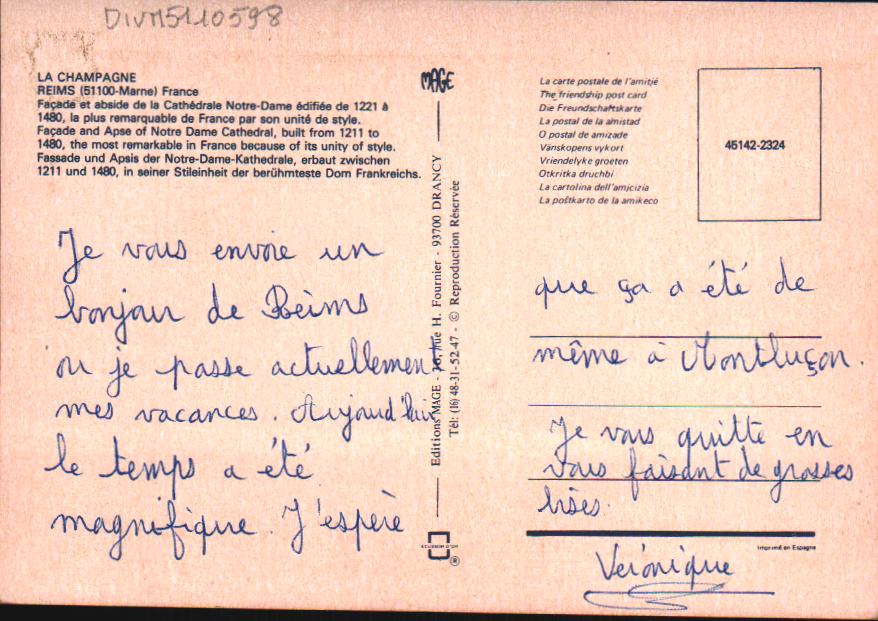 DIVM5110598
LA CHAMPAGNE
REIMS (51100-Marne) France
Façade et abside de la Cathédrale Notre-Dame édifiée de 1221 à
1480, la plus remarquable de France par son unité de style.
Façade and Apse of Notre Dame Cathedral, built from 1211 to
1480, the most remarkable in France because of its unity of style.
Fassade und Apsis der Notre-Dame-Kathedrale, erbaut zwischen
1211 und 1480, in seiner Stileinheit der berühmteste Dom Frankreichs.
Je vous envoie un
bonjour de Reims
ou je passe actuellement
mes vacances. Aujourd'hui
le temps a été
magnifique. J'espère
MAGE
Editions MAGE - rue H. Fournier - 93700 DRANCY
Tél: (16) 48-31-52-47 - © Reproduction Réservée
ECUSSON D'OR
®
La carte postale de l'amitié
The friendship post card
Die Freundschaftskarte
La postal de la amistad
O postal de amizade
Vänskopens vykort
Vriendelyke groeten
Otkritka druchbi
La cartolina dell'amicizia
La poŝtkarto de la amikeco
45142-2324
que ça a été de
même à Montluçon.
Je vous quitte en
vous faisant de grosses
bises.
Imprimé en Espagne
Veronique